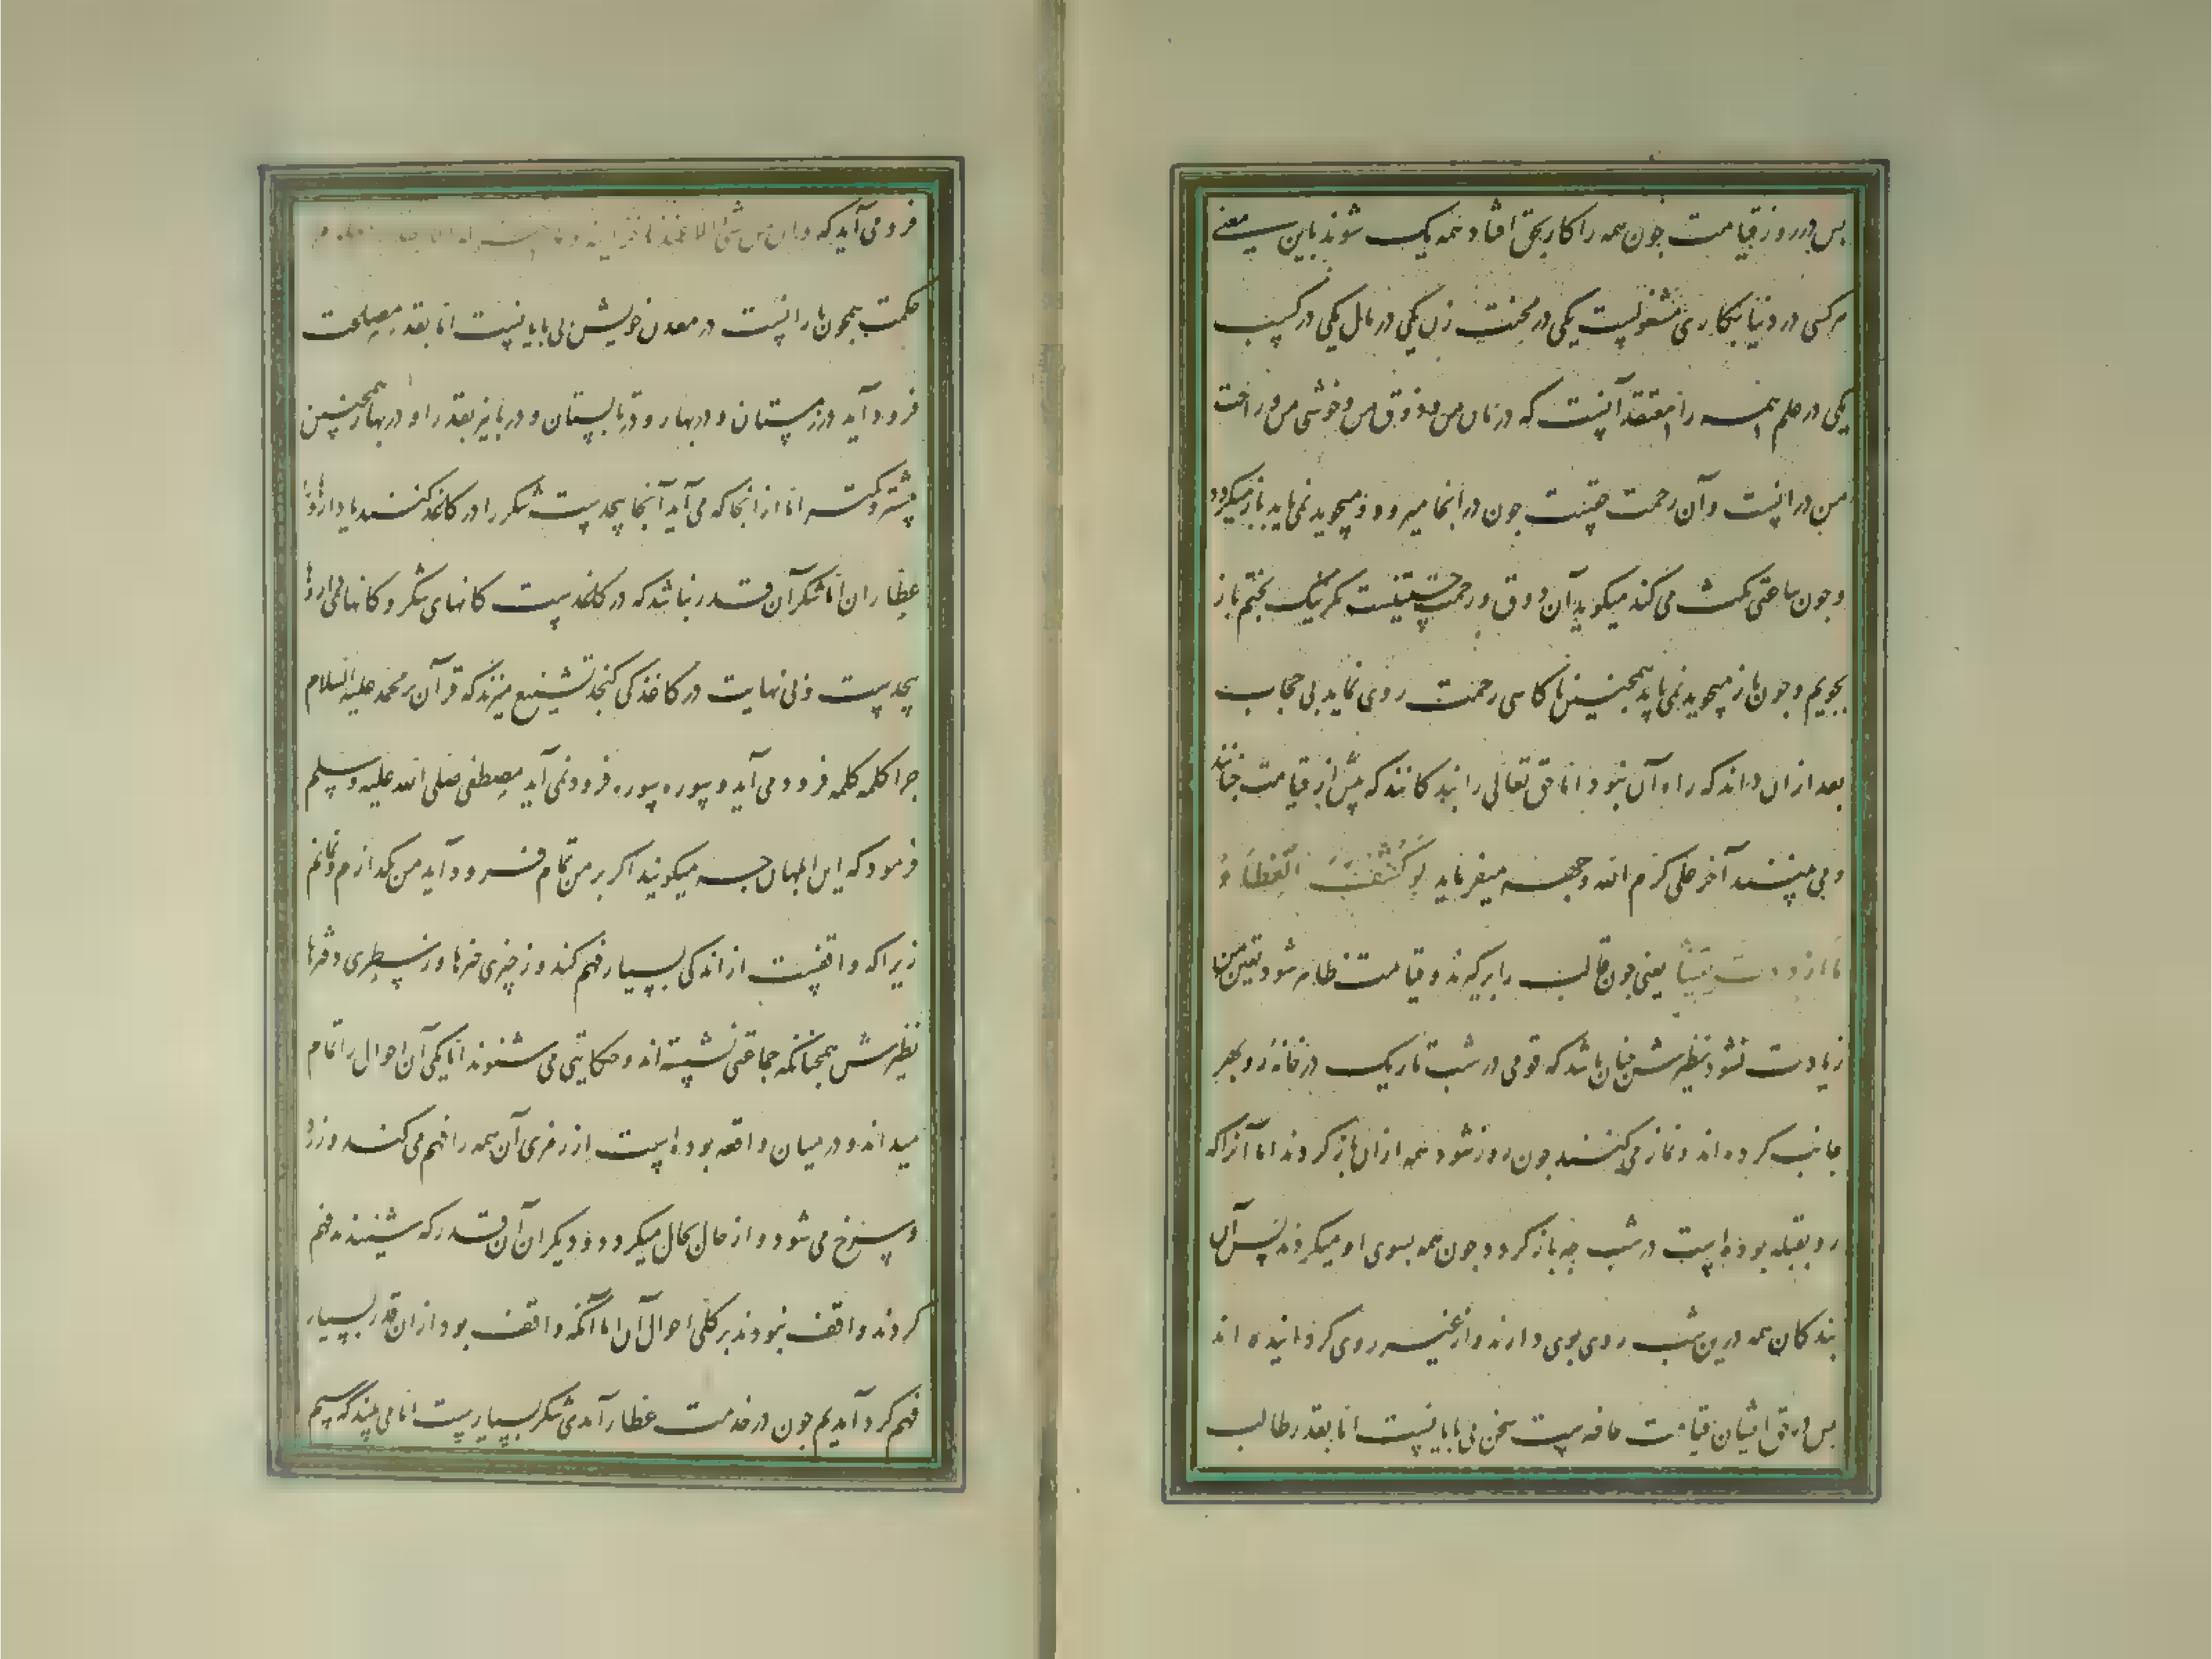 پس در روز قیامت چون همه را کار بحق افتاد همه یک شوند باین معنی
هر کسی در دنیا بکاری مشغولست یکی در محبت زن یکی در مال یکی در کسب
یکی در علم همه را معتقد آنست که درمان من و ذوق من و خوشی من و راحت
من در آنست و آن رحمت حقست چون در آنجا میرود و میجوید نمی یابد باز میکردد
و چون ساعتی مکث می کند میکوید آن ذوق و رحمت جستنیست مکر نیک نجستم باز
بجویم و چون باز میجوید نمی یابد همچنین تا کاهی رحمت روی نماید بی حجاب
بعد از آن داند که راه آن نبود اما حق تعالی را بندکانند که پیش از قیامت چنانند
و می بینند آخر علی کرم الله وجهه میفرماید لو کشف الغطاء
ما ازددت یقینا یعنی چون قالب را برکیرند و قیامت ظاهر شود یقین من
زیادت نشود نظیرش چنان باشد که قومی در شب تاریک در خانه رو بهر
جانب کرده اند و نماز می کنند چون روز شود همه از آن باز کردند اما آنرا که
رو بقبله بوده است در شب چه باز کردد چون همه بسوی او میکردند پس آن
بندکان هم درین شب روی بوی دارند و از غیر روی کردانیده اند
پس در حق ایشان قیامت حاضرست سخن بی پایانست اما بقدر طالب
فرو می آید که وان من شئ الا عندنا خزائنه و ما
حکمت همچون بارانست در معدن خویش بی پایانست اما بقدر مصلحت
فرود آید در زمستان و در بهار و در تابستان و در پاییز بقدر او و در بهار همچنین
بیشتر و کمتر اما از آنجا که می آید آنجا بیحدست شکر را در کاغذ کنند یا داروها
عطاران اما شکر آن قدر نباشد که در کاغذست کانهای شکر و کانهای دارو
بیحدست و بی نهایت در کاغذ کی کنجد تشنیع میزنند که قرآن بر محمد علیه السلام
چرا کلمه کلمه فرود می آید و سوره سوره فرود نمی آید مصطفی صلی الله علیه وسلم
فرمود که این ابلهان چه میکویند اکر بر من تمام فرود آید من بکدازم و نمانم
زیرا که واقفست از اندکی بسیار فهم کند و ز چیزی چیزها و ز سطری دفترها
نظیرش همچنانکه جماعتی نشسته اند و حکایتی می شنوند اما یکی آن احوال را تمام
میداند و در میان واقعه بوده است از رمزی آن همه را فهم می کند و زرد
و سرخ می شود و از حال بحال میکردد و دیکران آن قدر که شنیدند فهم
کردند واقف نبودند بر کلی احوال آن اما آنکه واقف بود از آن قدر بسیار
فهم کرد آمدیم چون در خدمت عطار آمدی شکر بسیارست اما می بیند که سیم